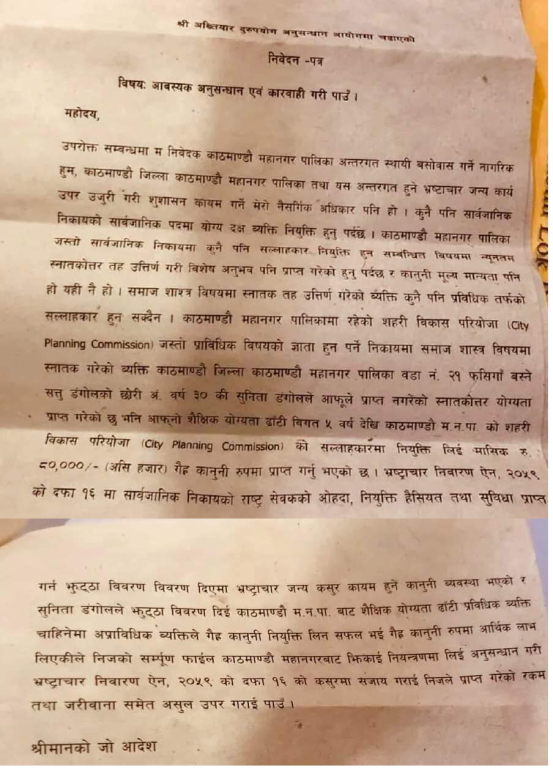 श्री अख्तियार दुरुपयोग अनुसन्धान आयोगमा चढाएको
निवेदन -पत्र
विषय: आबस्यक अनुसन्धान एवं कारवाही गरी पाउँ ।
महोदय,
उपरोक्त सम्बन्धमा म निवेदक काठमाण्डौ महानगर पालिका अन्तरगत स्थायी बसोवास गर्ने नागरिक
हुम, काठमाण्डौ जिल्ला काठमाण्डौ महानगर पालिका तथा यस अन्तरगत हुने भ्रष्टाचार जन्य कार्य
उपर उजुरी गरी शुशासन कायम गर्ने मेरो नैसर्गिक अधिकार पनि हो । कुनै पनि सार्वजानिक
निकायको सार्बजानिक पदमा योग्य दक्ष ब्यक्ति नियुक्ति हुनु पर्दछ । काठमाण्डौ महानगर पालिका
जस्तो सार्वजानिक निकायमा कुनै पनि सल्लाहकार नियुक्ति हुन सम्बन्धित बिषयमा न्यूनतम
स्नातकोत्तर तह उत्तिर्ण गरी बिशेष अनुभव पनि प्राप्त गरेको हुनु पर्दछ र कानुनी मूल्य मान्यता पनि
हो यही नै हो । समाज शाश्त्र विषयमा स्नातक तह उत्तिर्ण गरेको ब्यक्ति कुनै पनि प्रविधिक तर्फको
सल्लाहकार हुन सक्दैन । काठमाण्डौ महानगर पालिकामा रहेको शहरी बिकास परियोजा (City
Planning Commission) जस्तो प्राविधिक बिषयको ज्ञाता हुन पर्ने निकायमा समाज शास्त्र विषयमा
स्नातक गरेको ब्यक्ति काठमाण्डौ जिल्ला काठमाण्डौ महानगर पालिका वडा नं. २१ फसिगाँ बस्ने
सत्तु डंगोलको छोरी अं. वर्ष ३० की सुनिता डंगोलले आफूले प्राप्त नगरेको स्नातकोत्तर योग्यता
प्राप्त गरेको छु भनि आफूनो शैक्षिक योग्यता ढाँटी बिगत ५ वर्ष देखि काठमाण्डौ म.न.पा. को शहरी
विकास परियोजा (City Planning Commission) को सल्लाहकारमा नियुक्ति लिई मासिक रु.
८०,०००/- (असि हजार) गैह्र कानुनी रुपमा प्राप्त गर्नु भएको छ । भ्रष्टाचार निबारण ऐन, २०५९
को दफा १६ मा सार्वजानिक निकायको राष्ट सेवकको ओहदा, नियुक्ति हैसियत तथा सुविधा प्राप्त
गर्न झुट्ठा विवरण विवरण दिएमा भ्रष्टाचार जन्य कसुर कायम हुने कानुनी ब्यवस्था भएको र
सुनिता डंगोलले झुट्ठा विवरण दिई काठमाण्डौ म.न.पा. बाट शैक्षिक योग्यता ढाँटी प्रविधिक ब्यक्ति
चाहिनेमा अप्राविधिक ब्यक्तिले गैह्र कानुनी नियुक्ति लिन सफल भई गैह्र कानुनी रुपमा आर्थिक लाभ
लिएकीले निजको सर्म्पूण फाईल काठमाण्डौ महानगरबाट झिकाई नियन्त्रणमा लिई अनुसन्धान गरी
भ्रष्टाचार निबारण ऐन, २०५९ को दफा १६ को कसुरमा संजाय गराई निजले प्राप्त गरेको रकम
तथा जरीवाना समेत असुल उपर गराई पाउँ ।
श्रीमानको जो आदेश